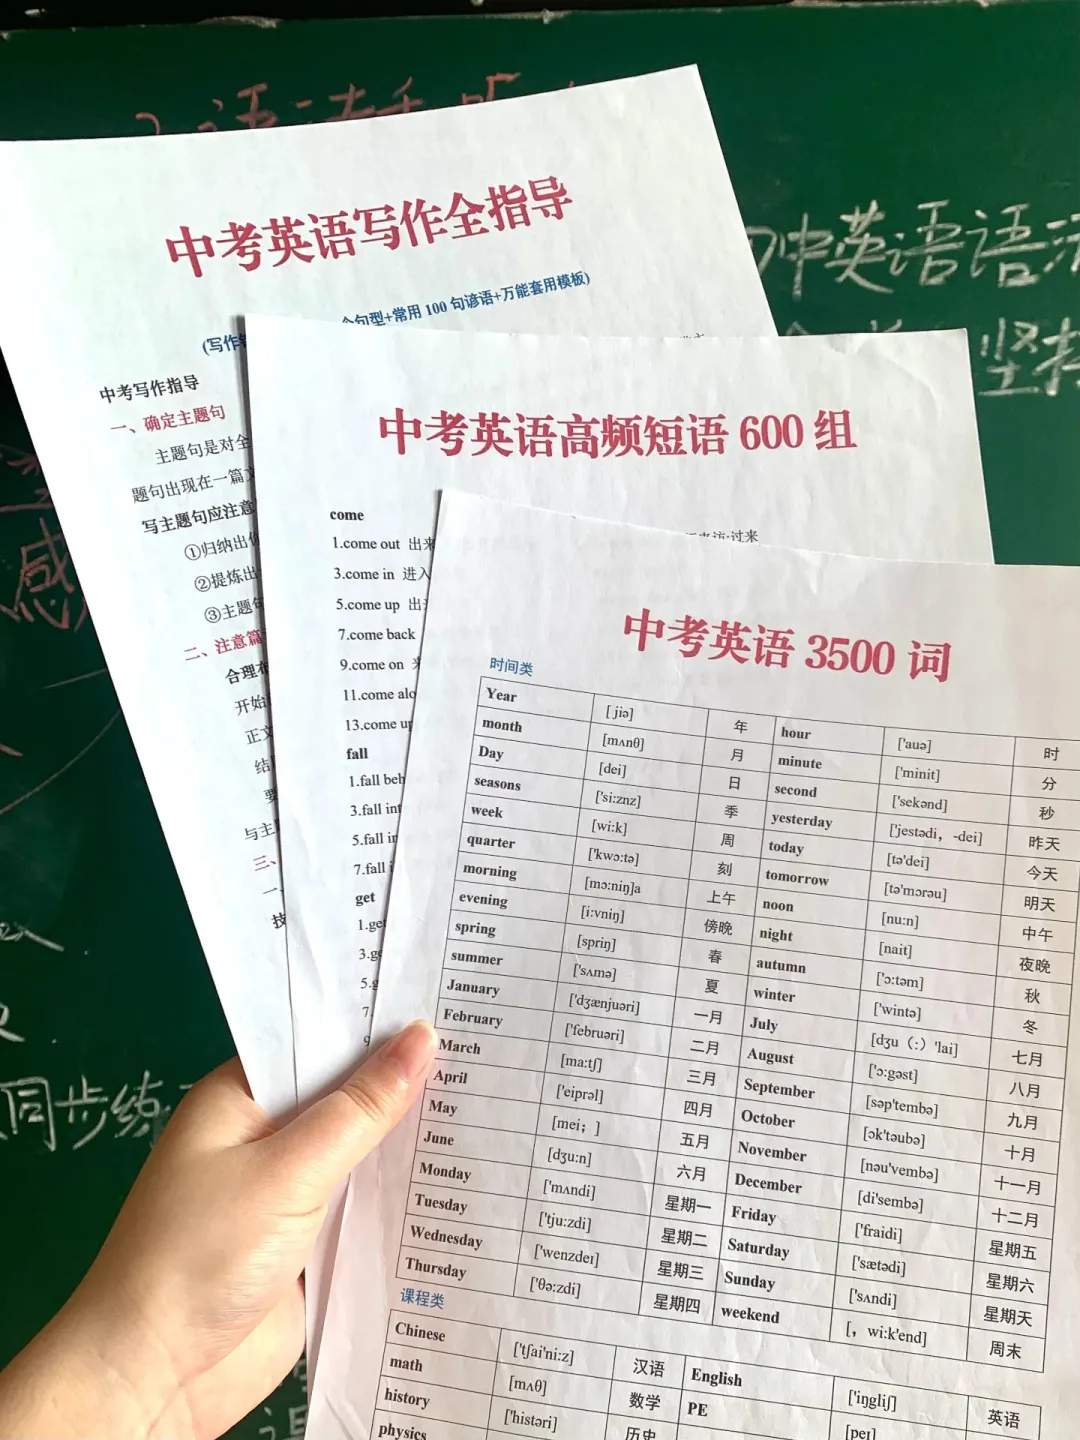 中英语语法
坚持
感
同步练
中考英语写作全指导
(写作
个句型+常用100句谚语+万能套用模板)
中考写作指导
一、确定主题句
主题句是对全
题句出现在一篇文
写主题句应注意
①归纳出你
②提炼出
③主题句
二、注意篇
合理布
开始
正文
结
要
与主
三、
一、
技
中考英语高频短语 600 组
come
1.come out 出来
过来
3.come in 进入
5.come up
7.come back
9.come on
11.come alo
13.come up
fall
1.fall beh
3.fall int
5.fall in
7.fall i
get
1.get
3.ge
5.g
7.
9
中考英语 3500 词
时间类
Year [ jiə] 年 hour ['auə] 时
month [mʌnθ] 月 minute ['minit] 分
Day [dei] 日 second ['sekənd] 秒
seasons ['si:znz] 季 yesterday ['jestədi，-dei] 昨天
week [wi:k] 周 today [tə'dei] 今天
quarter ['kwɔ:tə] 刻 tomorrow [tə'mɔrəu] 明天
morning [mɔ:niŋ]a 上午 noon [nu:n] 中午
evening [i:vniŋ] 傍晚 night [nait] 夜晚
spring [spriŋ] 春 autumn ['ɔ:təm] 秋
summer ['sʌmə] 夏 winter ['wintə] 冬
January ['dʒænjuəri] 一月 July [dʒu（:）'lai] 七月
February ['februəri] 二月 August ['ɔ:gəst] 八月
March [ma:tʃ] 三月 September [səp'tembə] 九月
April ['eiprəl] 四月 October [ɔk'təubə] 十月
May [mei；] 五月 November [nəu'vembə] 十一月
June [dʒu:n] 六月 December [di'sembə] 十二月
Monday ['mʌndi] 星期一 Friday ['fraidi] 星期五
Tuesday ['tju:zdi] 星期二 Saturday ['sætədi] 星期六
Wednesday ['wenzdeɪ] 星期三 Sunday ['sʌndi] 星期天
Thursday ['θə:zdi] 星期四 weekend [，wi:k'end] 周末
课程类
Chinese ['tʃai'ni:z] 汉语 English ['iŋgliʃ] 英语
math [mʌθ] 数学 PE [peɪ]
history ['histəri] 历史
physics